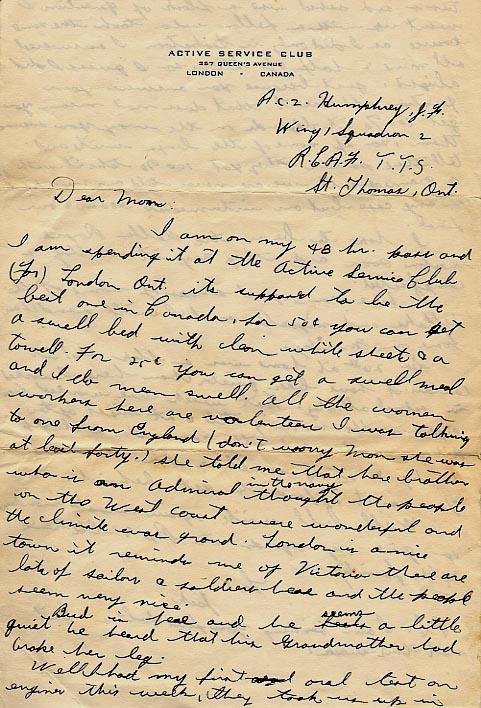 ACTIVE SERVICE CLUB
387 QUEEN'S AVENUE
LONDON - CANADA
A.C.2. Humphrey, J.H.
Wing 1 Squadron 2
R.C.A.F. T.T.S.
St. Thomas, Ont.
Dear Mom:
I am on my 48 hr. pass and
I am spending it at the Active Service Club
London Ont. its supposed to be the
best one in Canada, for 50¢ you can get
a swell bed with clean white sheets & a
towell. For 25¢ you can get a swell meal
and I do mean swell. All the women
workers here are volenteer I was talking
to one from England (don't worry Mom she was
at least forty.) she told me that her brother
who is an Admiral in the navy thought the people
on the West coast were wonderful and
the climate was grand. London is a nice
town it reminds me of Victoria there are
lots of sailors & soldiers here and the people
seem very nice.
Bud is here and he seems a little
quiet he heard that his Grandmother had
broke her leg.
Well I had my first oral test on
engines this week, they took us up in